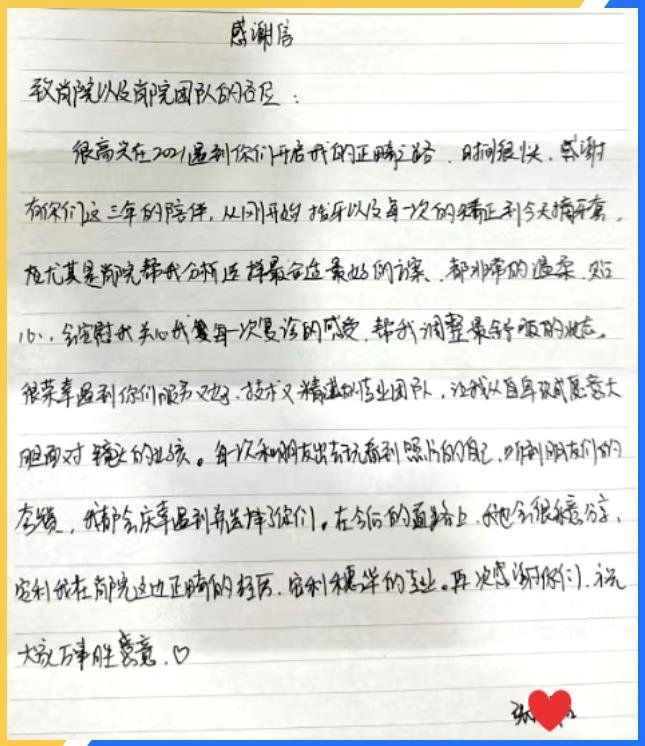 感谢信
致尚院以及尚院团队的各位：
很高兴在2021遇到你们开启我的正畸之路，时间很快，感谢
有你们这三年的陪伴，从刚开始拔牙以及每一次的矫正到今天摘牙套，
尤其是尚院帮我分析选择最合适最好的方案，都非常的温柔，贴
心，会安慰我关心我每一次复诊的感受，帮我调整最舒服的状态。
很荣幸遇到你们服务又好，技术又精湛的专业团队，让我从自卑变成愿意大
胆面对镜头的女孩。每一次和朋友出去玩看到照片的自己，听到朋友们的
夸赞，我都会庆幸遇到并选择了你们。在今后的道路上，我也会很乐意分享，
安利我在尚院这边正畸的经历，安利穗华的专业。再次感谢你们，祝
大家万事胜意，♡
张